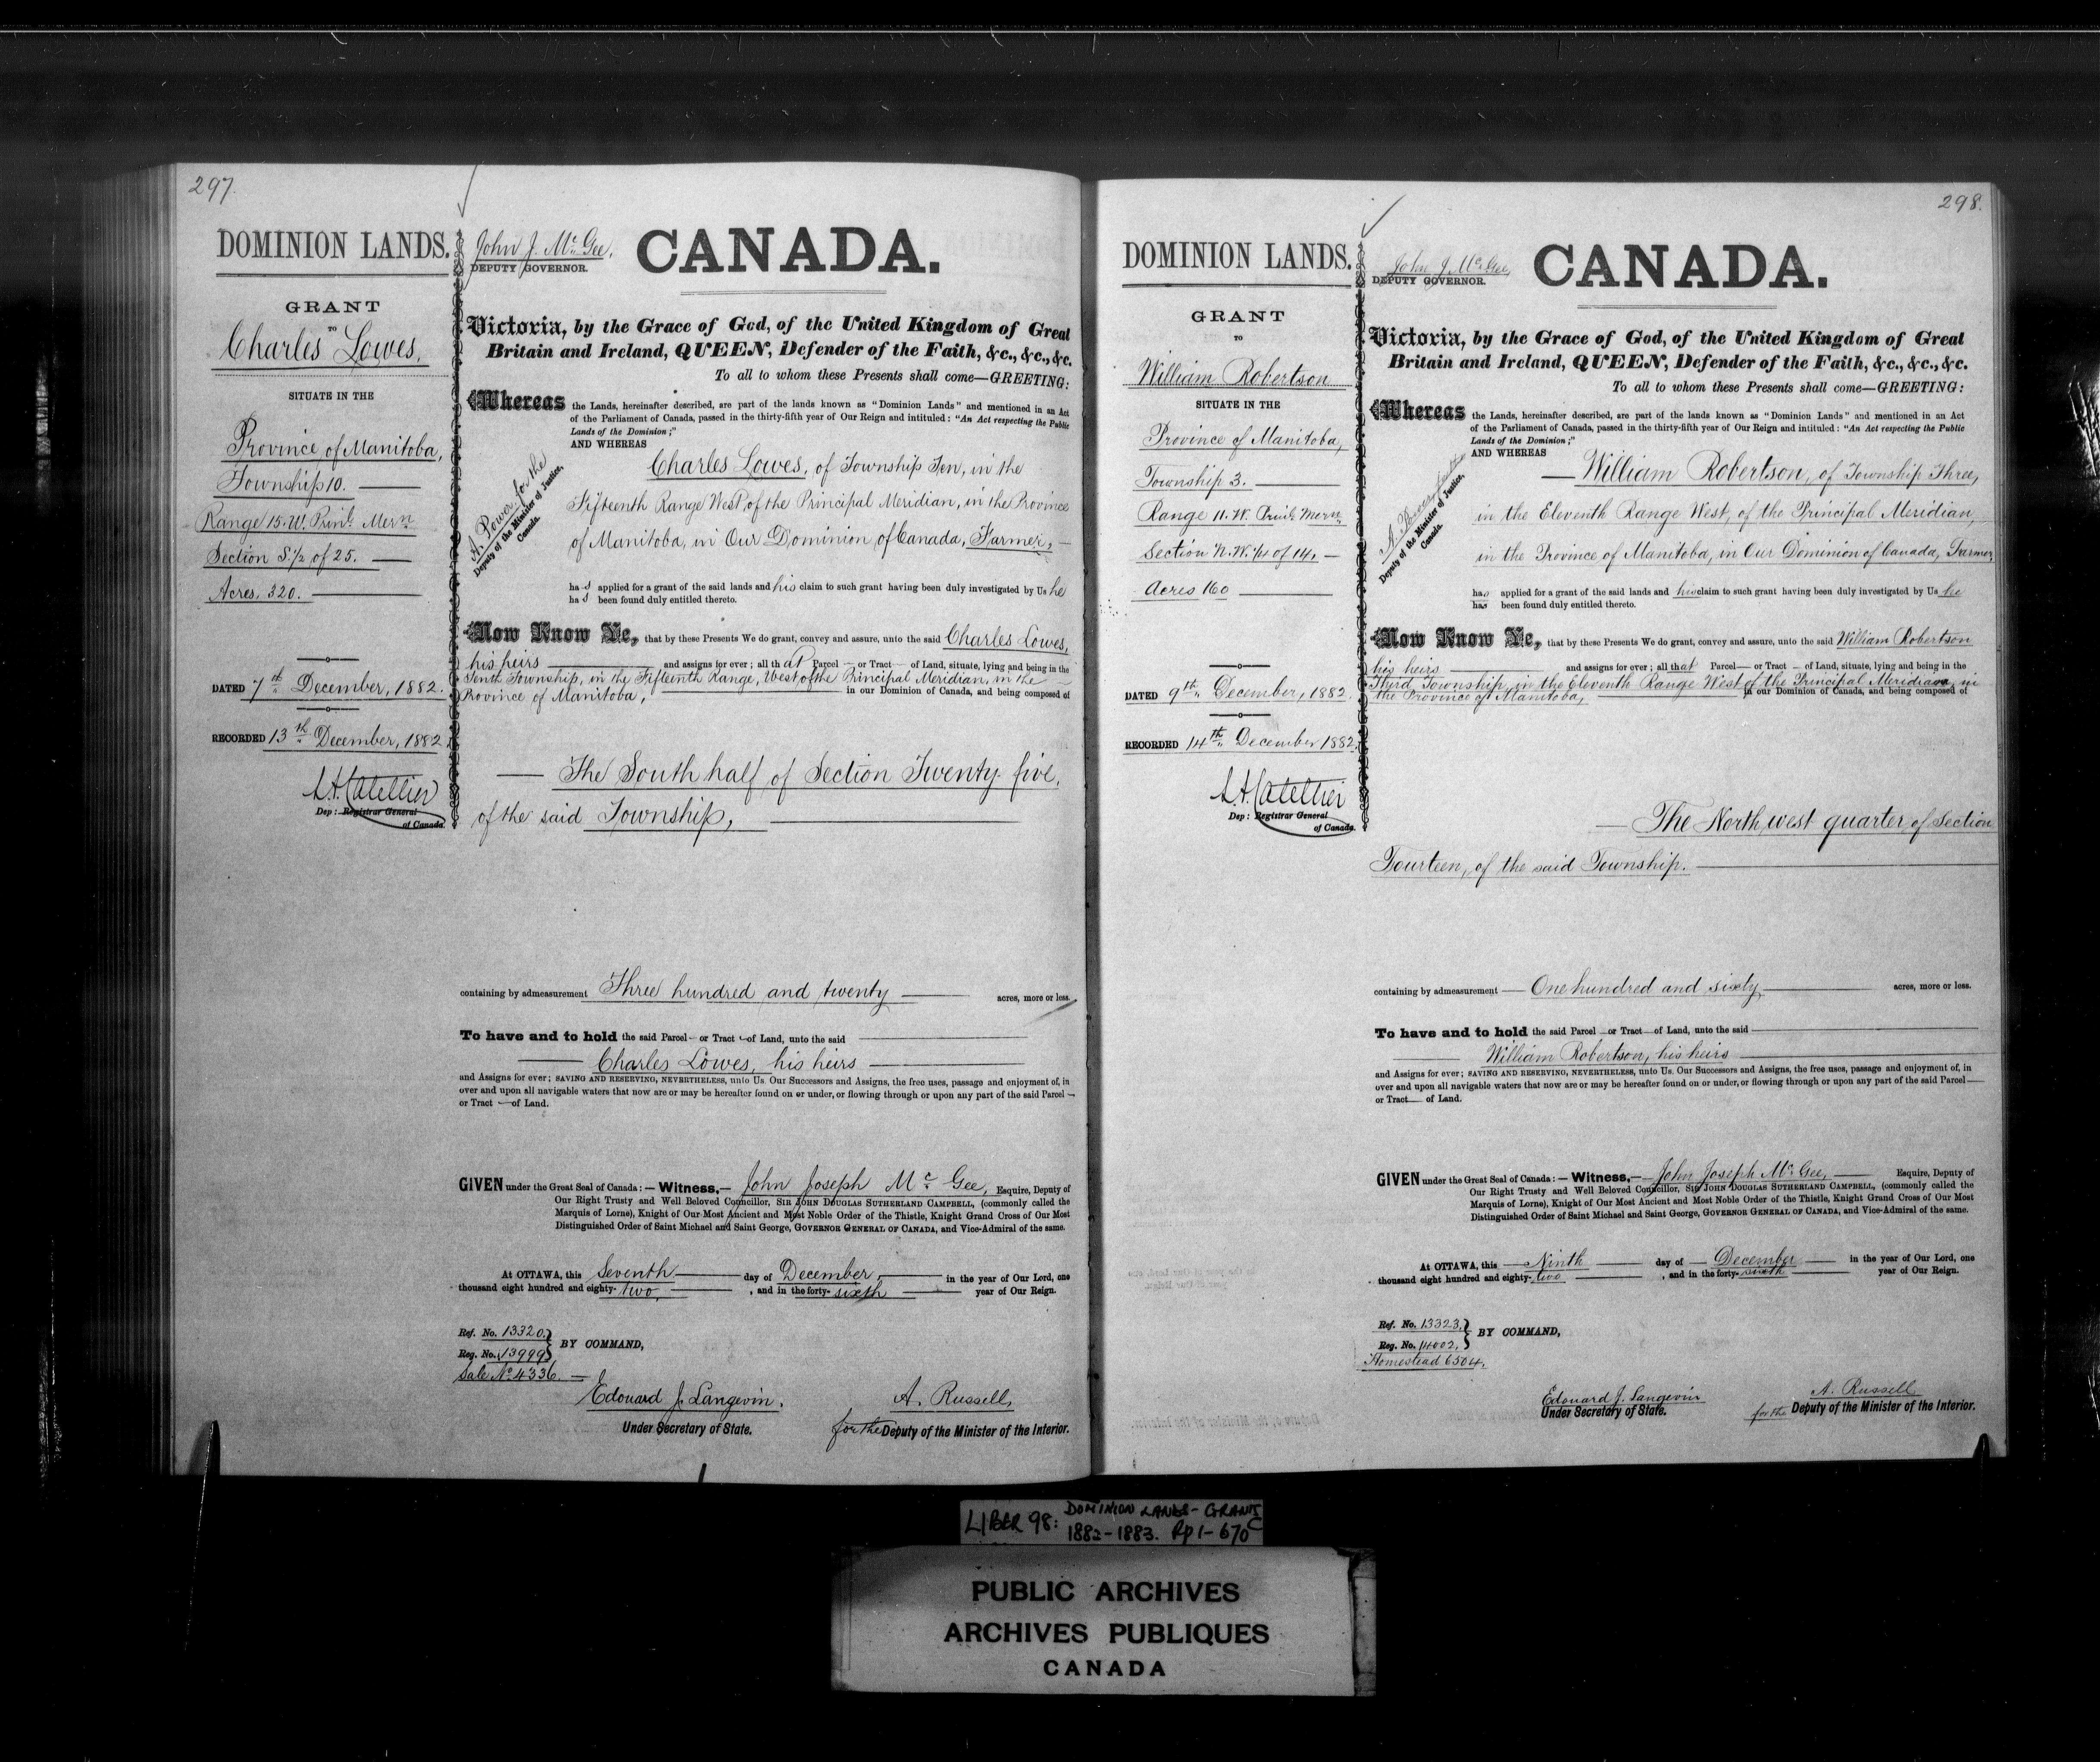 297.
DOMINION LANDS.
GRANT
TO
Charles Lowes,
SITUATE IN THE
Province of Manitoba,
Township 10.
Range 15. W. Prinl. Mern
Section S. 1/2 of 25.
Acres, 320.
DATED 7th December, 1882.
RECORDED 13th December, 1882.
L.A. Catellier
Dep: Registrar General
of Canada.
John J. McGee,
DEPUTY GOVERNOR.
CANADA.
Victoria, by the Grace of God, of the United Kingdom of Great
Britain and Ireland, QUEEN, Defender of the Faith, &c., &c., &c.
To all to whom these Presents shall come—GREETING:
Whereas the Lands, hereinafter described, are part of the lands known as "Dominion Lands" and mentioned in an Act
of the Parliament of Canada, passed in the thirty-fifth year of Our Reign and intituled: "An Act respecting the Public
Lands of the Dominion;"
AND WHEREAS
A. Power, for the
Deputy of the Minister of Justice,
Canada.
Charles Lowes, of Township Ten, in the
Fifteenth Range West, of the Principal Meridian, in the Province
of Manitoba, in Our Dominion of Canada, Farmer, —
has applied for a grant of the said lands and his claim to such grant having been duly investigated by Us he
has been found duly entitled thereto.
Now Know Ye, that by these Presents We do grant, convey and assure, unto the said Charles Lowes,
his heirs and assigns for ever; all that Parcel — or Tract — of Land, situate, lying and being in the
Tenth Township, in the Fifteenth Range, West of the Principal Meridian, in the
Province of Manitoba, in our Dominion of Canada, and being composed of
— The South half of Section Twenty five,
of the said Township,
containing by admeasurement Three hundred and twenty — acres, more or less.
To have and to hold the said Parcel — or Tract — of Land, unto the said
Charles Lowes, his heirs
and Assigns for ever; SAVING AND RESERVING, NEVERTHELESS, unto Us. Our Successors and Assigns, the free uses, passage and enjoyment of, in
over and upon all navigable waters that now are or may be hereafter found on or under, or flowing through or upon any part of the said Parcel —
or Tract — of Land.
GIVEN under the Great Seal of Canada: — Witness,— John Joseph McGee, Esquire, Deputy of
Our Right Trusty and Well Beloved Councillor, SIR JOHN DOUGLAS SUTHERLAND CAMPBELL, (commonly called the
Marquis of Lorne), Knight of Our Most Ancient and Most Noble Order of the Thistle, Knight Grand Cross of Our Most
Distinguished Order of Saint Michael and Saint George, GOVERNOR GENERAL OF CANADA, and Vice-Admiral of the same.
At OTTAWA, this Seventh day of December, in the year of Our Lord, one
thousand eight hundred and eighty-two, , and in the forty-sixth year of Our Reign.
Ref. No. 13320.
Reg. No. 13999
BY COMMAND,
Sale No. 4336.
Edouard J. Langevin.
Under Secretary of State.
A. Russell,
for the Deputy of the Minister of the Interior.
298.
DOMINION LANDS.
GRANT
TO
William Robertson
SITUATE IN THE
Province of Manitoba,
Township 3.
Range 11. W. Prinl. Mern.
Section N. W. 1/4 of 14,
Acres 160
DATED 9th December, 1882.
RECORDED 14th December 1882.
L.A. Catellier
Dep: Registrar General
of Canada.
John J. McGee,
DEPUTY GOVERNOR.
CANADA.
Victoria, by the Grace of God, of the United Kingdom of Great
Britain and Ireland, QUEEN, Defender of the Faith, &c., &c., &c.
To all to whom these Presents shall come—GREETING:
Whereas the Lands, hereinafter described, are part of the lands known as "Dominion Lands" and mentioned in an Act
of the Parliament of Canada, passed in the thirty-fifth year of Our Reign and intituled: "An Act respecting the Public
Lands of the Dominion;"
AND WHEREAS
A. Power, for the
Deputy of the Minister of Justice,
Canada.
— William Robertson, of Township Three,
in the Eleventh Range West, of the Principal Meridian,
in the Province of Manitoba, in Our Dominion of Canada, Farmer,
has applied for a grant of the said lands and his claim to such grant having been duly investigated by Us he
has been found duly entitled thereto.
Now Know Ye, that by these Presents We do grant, convey and assure, unto the said William Robertson
his heirs and assigns for ever; all that Parcel — or Tract — of Land, situate, lying and being in the
Third Township, in the Eleventh Range West of the Principal Meridian, in
the Province of Manitoba, in our Dominion of Canada, and being composed of
— The North west quarter, of Section
Fourteen, of the said Township.
containing by admeasurement — One hundred and sixty, acres, more or less.
To have and to hold the said Parcel — or Tract — of Land, unto the said
William Robertson, his heirs
and Assigns for ever; SAVING AND RESERVING, NEVERTHELESS, unto Us. Our Successors and Assigns, the free uses, passage and enjoyment of, in
over and upon all navigable waters that now are or may be hereafter found on or under, or flowing through or upon any part of the said Parcel —
or Tract — of Land.
GIVEN under the Great Seal of Canada: — Witness,— John Joseph McGee, Esquire, Deputy of
Our Right Trusty and Well Beloved Councillor, SIR JOHN DOUGLAS SUTHERLAND CAMPBELL, (commonly called the
Marquis of Lorne), Knight of Our Most Ancient and Most Noble Order of the Thistle, Knight Grand Cross of Our Most
Distinguished Order of Saint Michael and Saint George, GOVERNOR GENERAL OF CANADA, and Vice-Admiral of the same.
At OTTAWA, this Ninth day of December in the year of Our Lord, one
thousand eight hundred and eighty-two , and in the forty-sixth year of Our Reign.
Ref. No. 13323,
Reg. No. 14002,
BY COMMAND,
Homestead 6504,
Edouard J. Langevin
Under Secretary of State.
A. Russell,
for the Deputy of the Minister of the Interior.
LIBER 98: DOMINION LANDS - GRANTS
1882-1883. Pp 1-670C
PUBLIC ARCHIVES
ARCHIVES PUBLIQUES
CANADA